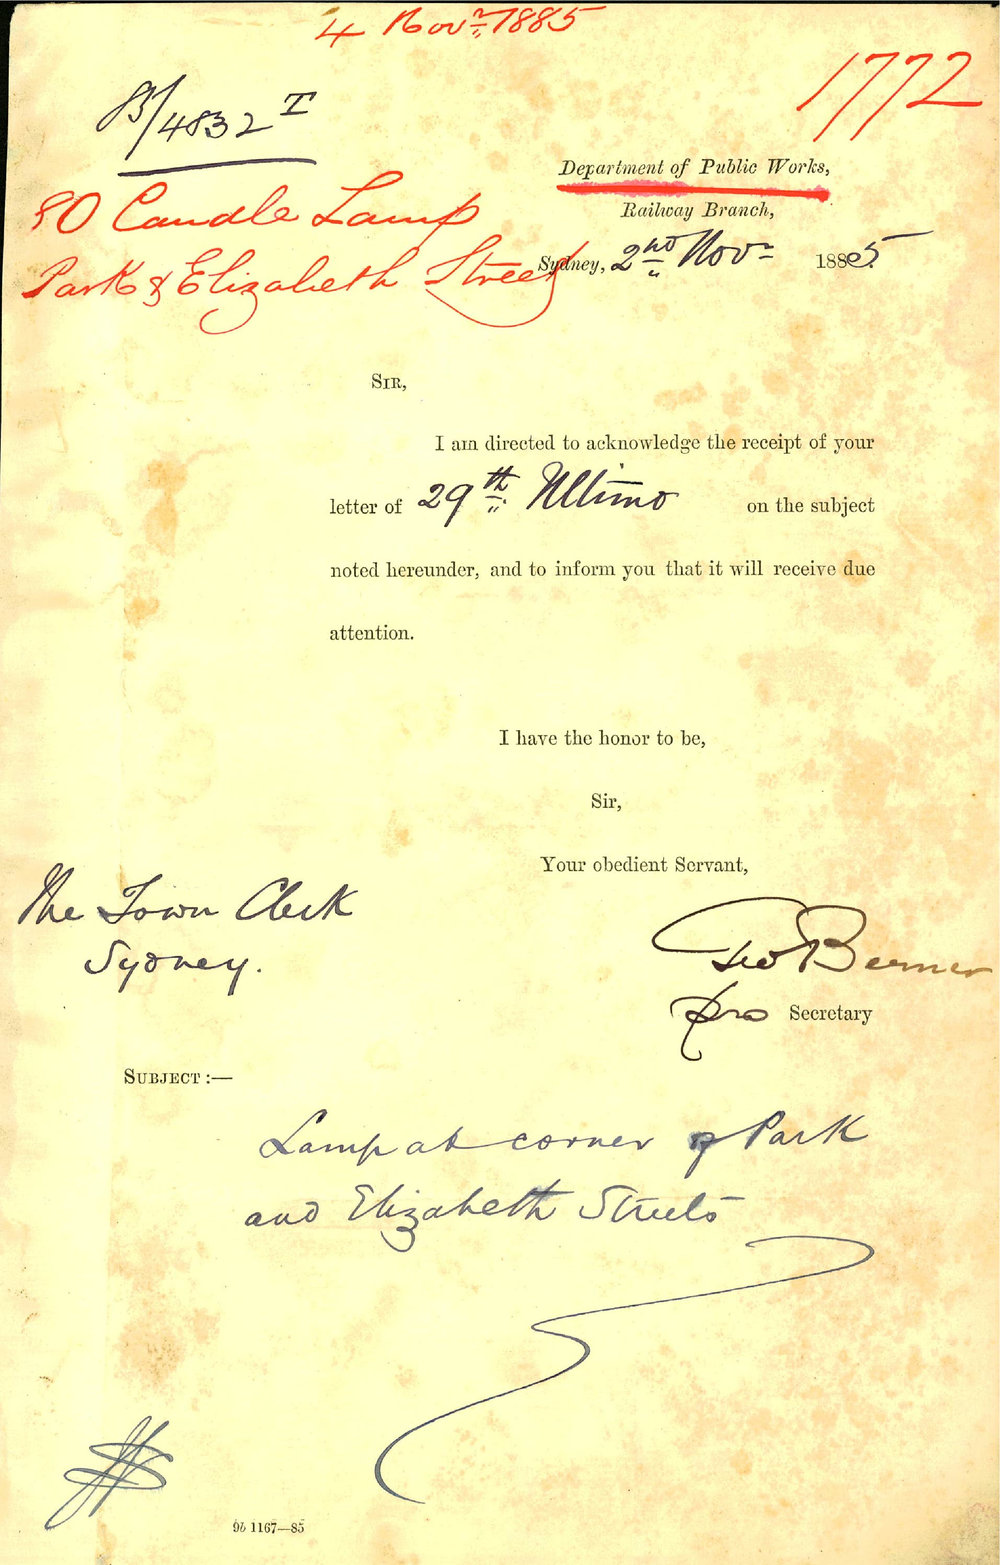 4 Novr. 1885
1772
85/4832 T
Department of Public Works,
80 Candle Lamp
Railway Branch,
Park & Elizabeth Street
Sydney, 2nd Novr 1885.
SIR,
I am directed to acknowledge the receipt of your
letter of 29th Ultimo on the subject
noted hereunder, and to inform you that it will receive due
attention.
I have the honor to be,
Sir,
Your obedient Servant,
The Town Clerk
Sydney.
Geo
pro Secretary
SUBJECT :—
Lamp at corner of Park
and Elizabeth Streets
9b 1167—85